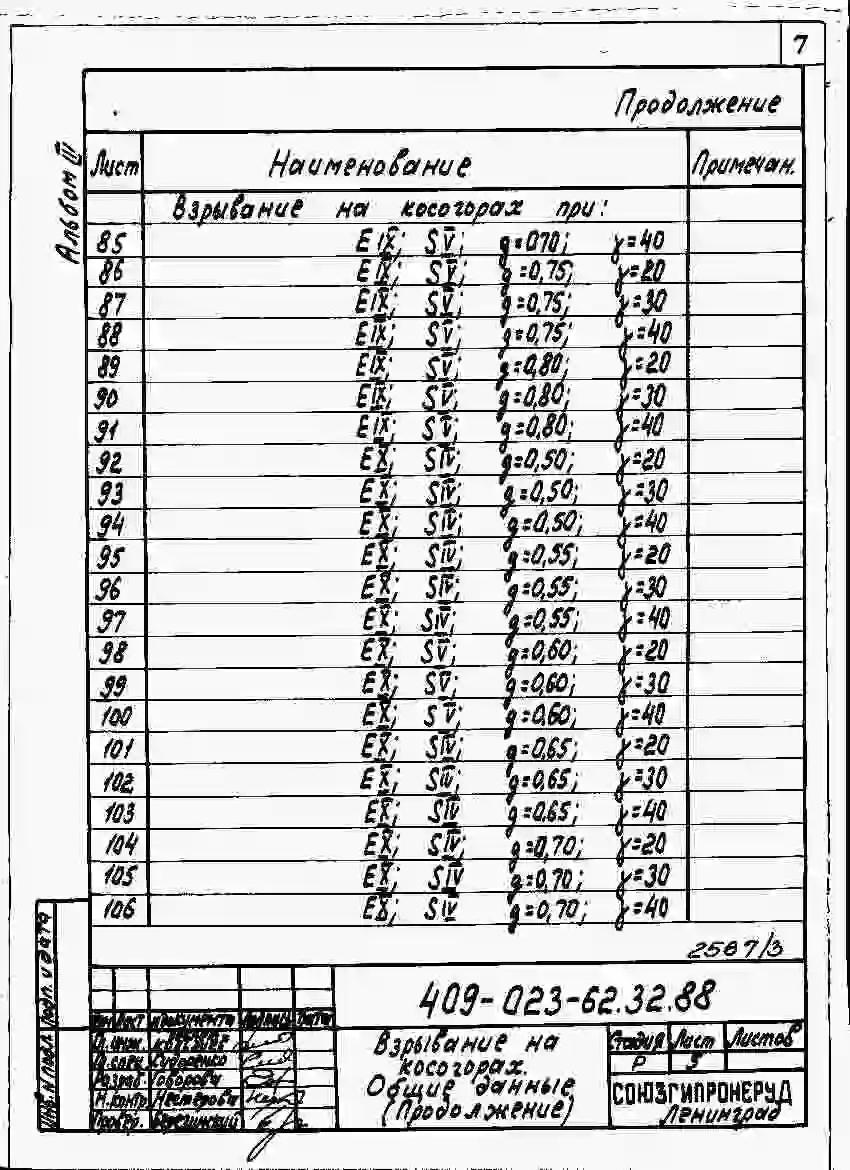 7
Продолжение
Альбом III
Лист Наименование Примечан.
Взрывание на косогорах при:
85 EIX; SV; g=070; γ=40
86 EIX; SV; g=0,75; γ=20
87 EIX; SV; g=0,75; γ=30
88 EIX; SV; g=0,75; γ=40
89 EIX; SV; g=0,80; γ=20
90 EIX; SV; g=0,80; γ=30
91 EIX; SV; g=0,80; γ=40
92 EX; SIV; g=0,50; γ=20
93 EX; SIV; g=0,50; γ=30
94 EX; SIV; g=0,50; γ=40
95 EX; SIV; g=0,55; γ=20
96 EX; SIV; g=0,55; γ=30
97 EX; SIV; g=0,55; γ=40
98 EX; SV; g=0,60; γ=20
99 EX; SV; g=0,60; γ=30
100 EX; SV; g=0,60; γ=40
101 EX; SIV; g=0,65; γ=20
102 EX; SIV; g=0,65; γ=30
103 EX; SIV g=0,65; γ=40
104 EX; SIV; g=0,70; γ=20
105 EX; SIV g=0,70; γ=30
106 EX; SIV g=0,70; γ=40
2587/3
409-023-62.32.88
Инв.N подл. Подп. и дата
Лист документа Подпись Дата
Гл.инж.
Гл.спец. Сидоренко
Разраб. Говорова
Н.контр. Нестерова
Провер. Березинский
Взрывание на
косогорах.
Общие данные
(Продолжение)
Стадия Лист Листов
Р 5
СОЮЗГИПРОНЕРУД
Ленинград